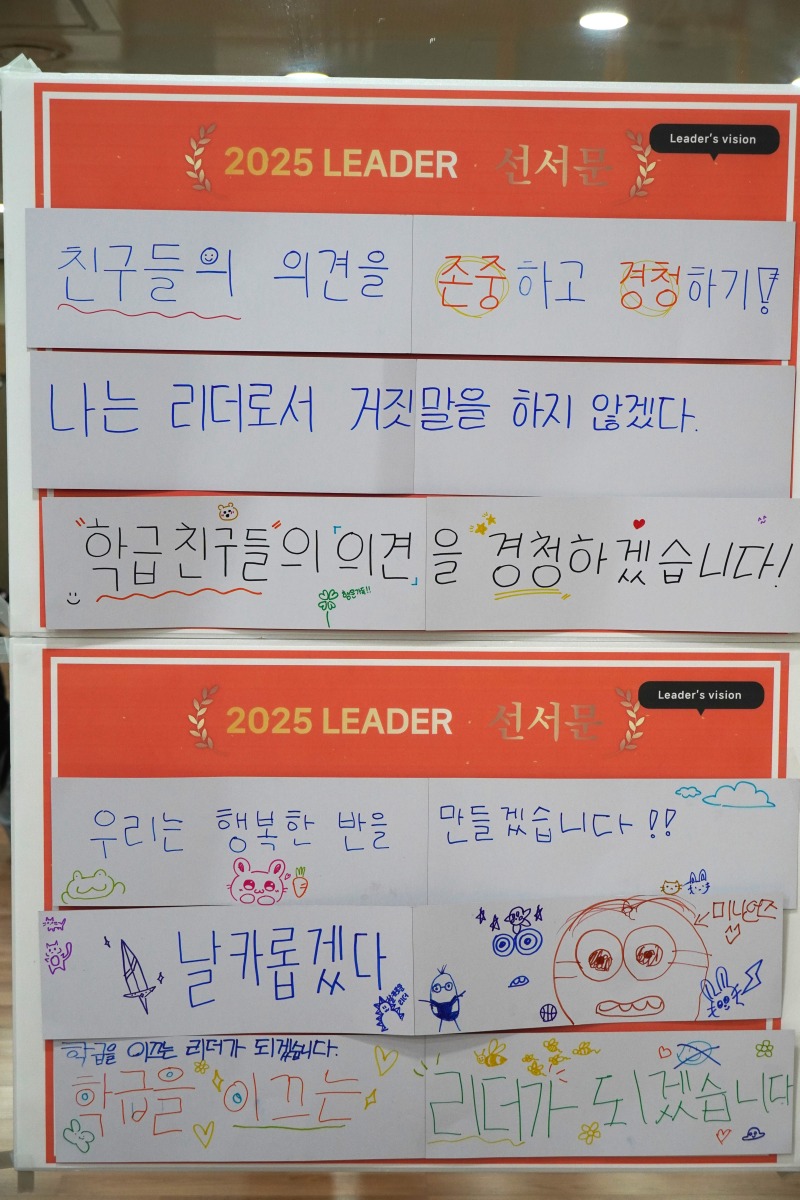 Leader's vision
2025 LEADER 선서문
친구들의 의견을 존중하고 경청하기!
나는 리더로서 거짓말을 하지 않겠다.
"학급 친구들"의 「의견」을 경청하겠습니다!
Leader's vision
2025 LEADER 선서문
우리는 행복한 반을 만들겠습니다!!
날카롭겠다
미니언즈
학급을 이끄는 리더가 되겠습니다.
학급을 이끄는 리더가 되겠습니다